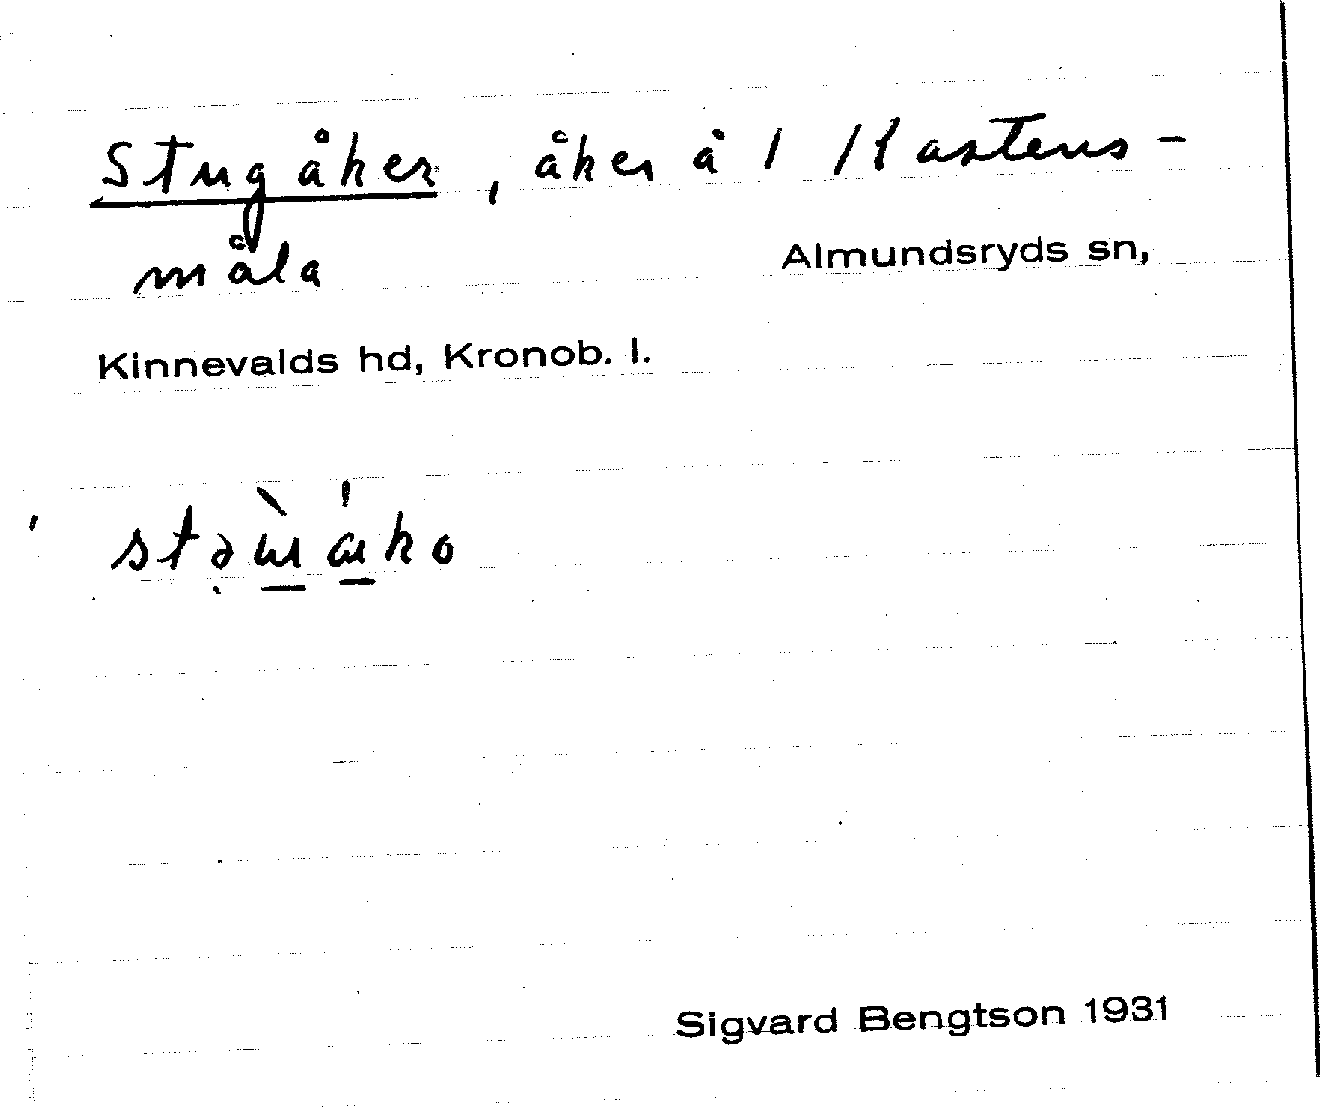 Stugåker, åker å 1 Kastens-
måla
Almundsryds sn,
Kinnevalds hd, Kronob. l.
Sigvard Bengtson 1931